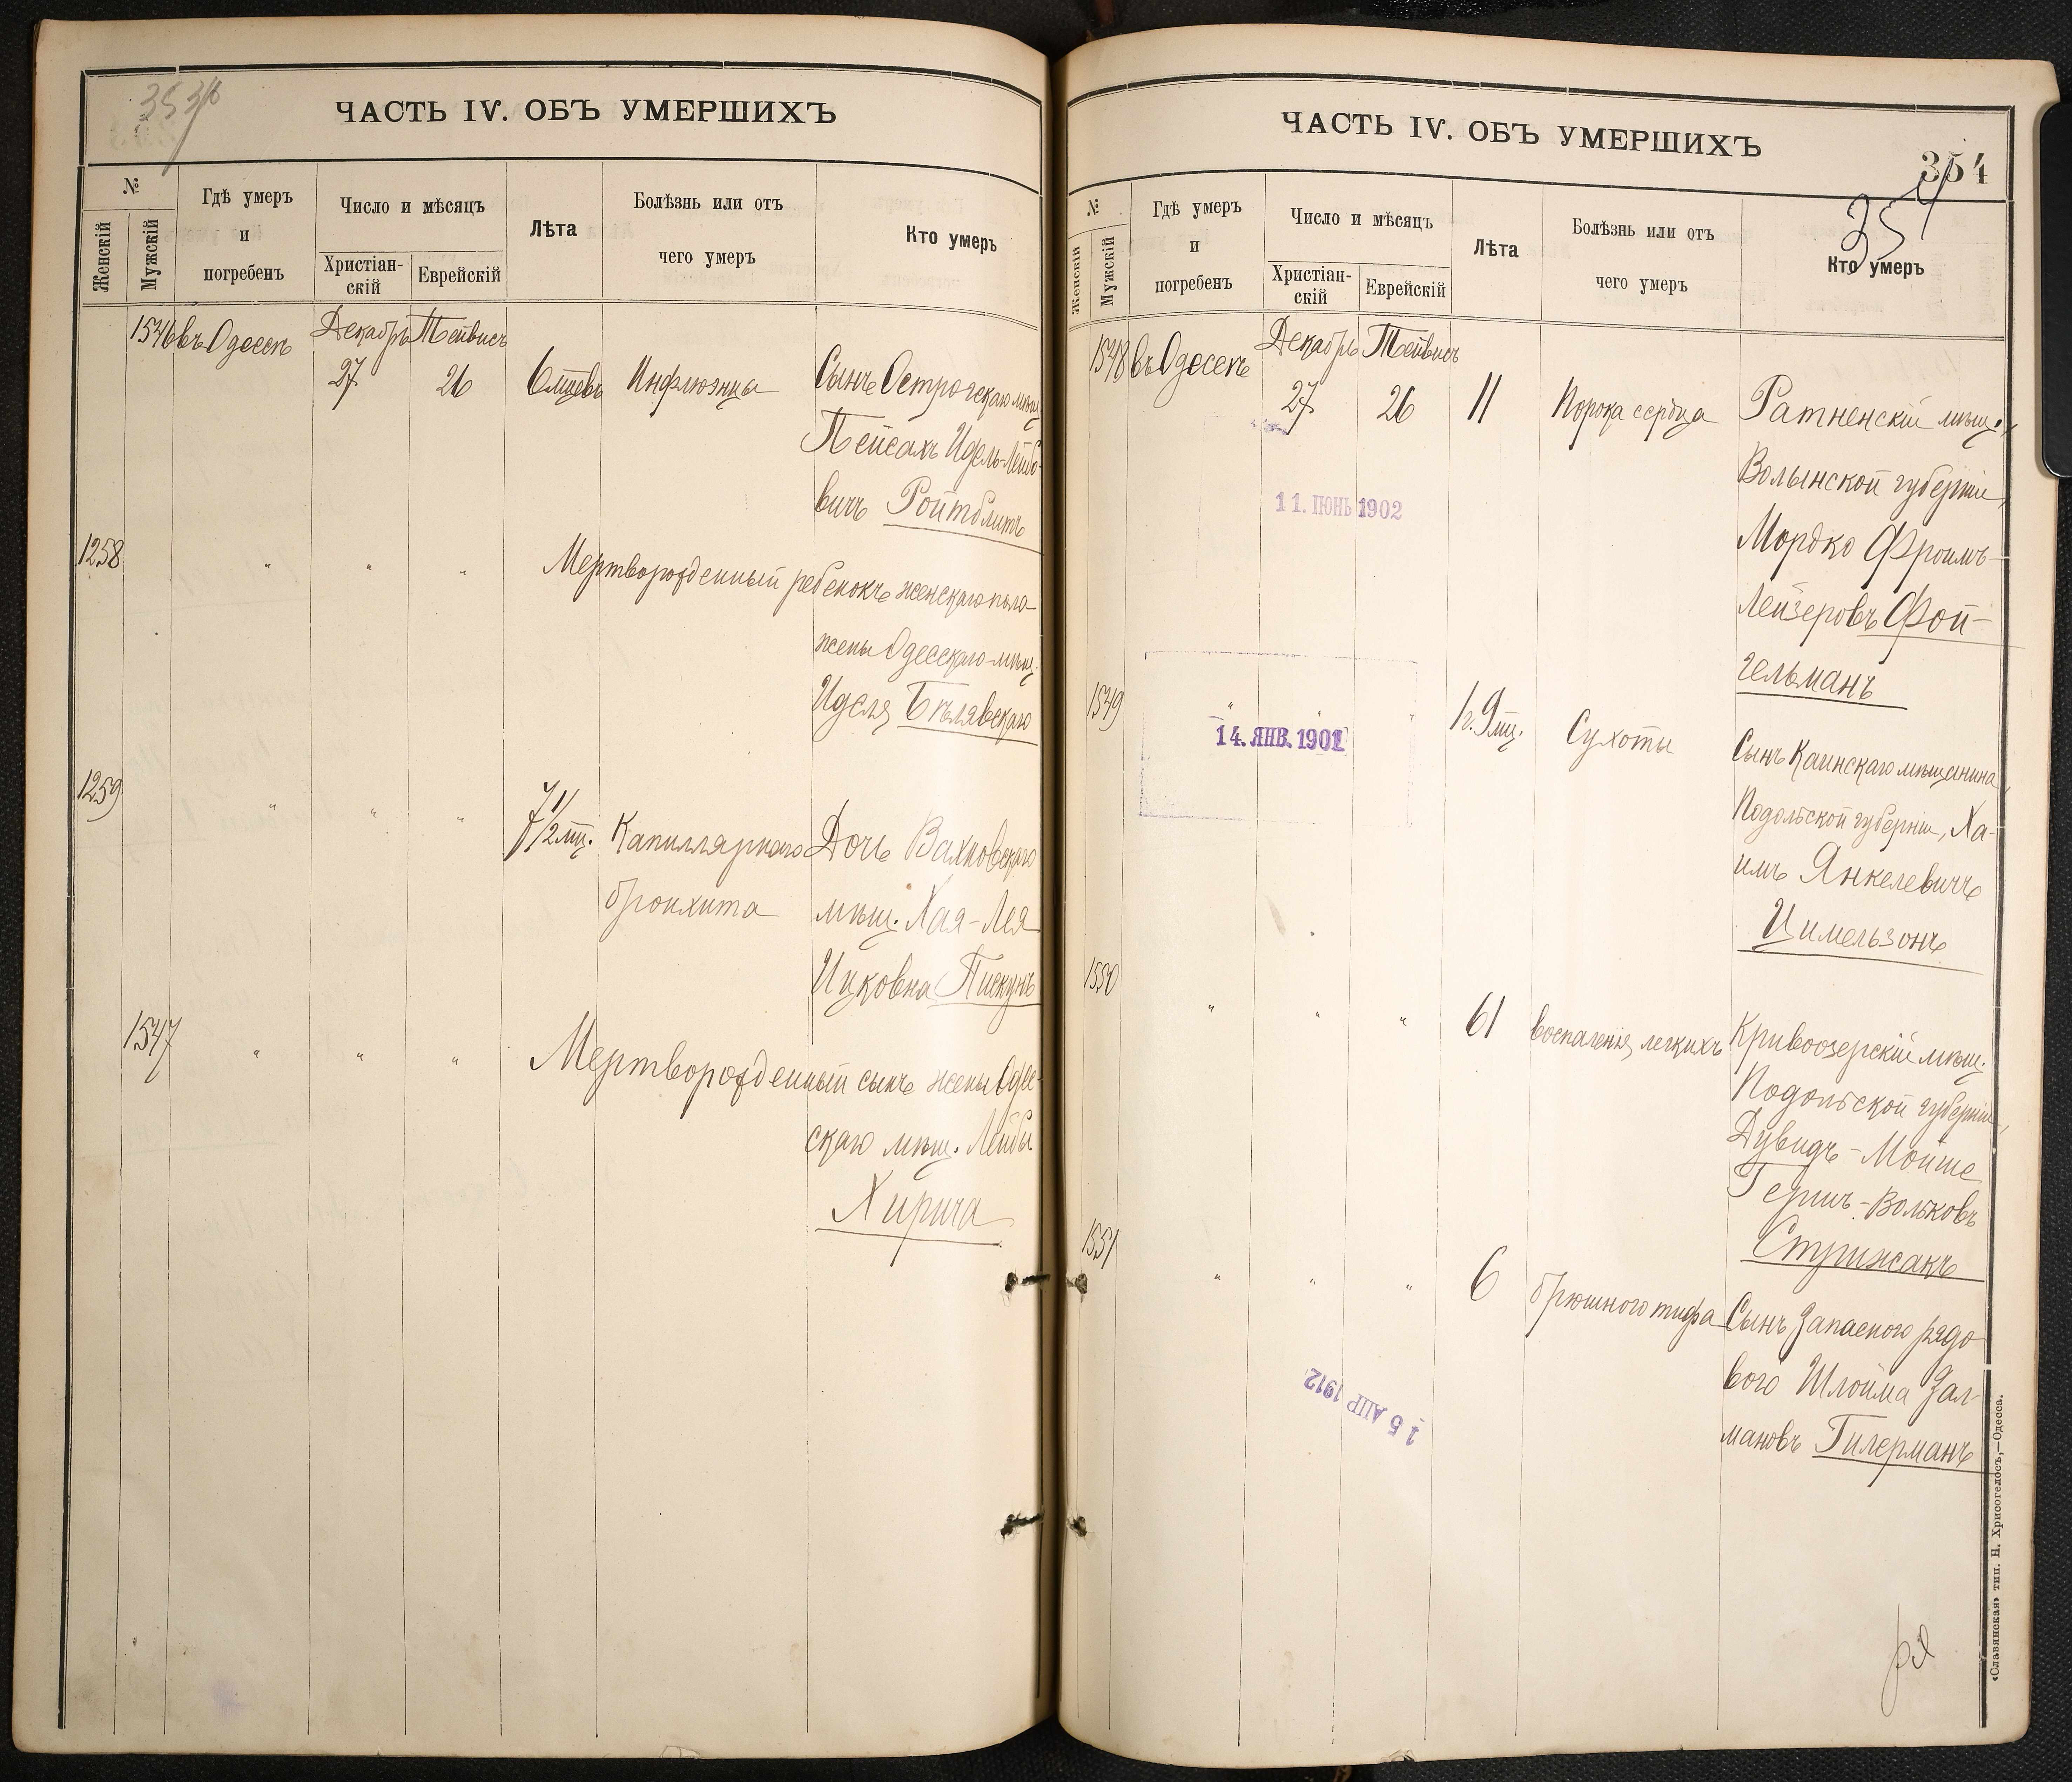 353 об
ЧАСТЬ IV. ОБЪ УМЕРШИХЪ
№
Женскій
Мужскій
Гдѣ умеръ
и
погребенъ
Число и мѣсяцъ
Христіан-
скій
Еврейскій
Лѣта
Болѣзнь или отъ
чего умеръ
Кто умеръ
1546 въ Одессѣ
Декабрь Тейвисъ
27 26 6 мцевъ Инфлюэнцы Сынъ Острогскаго мѣщ.
Пейсахъ Идель-Лейбо-
вичъ Ройтблитъ
1258 " " " Мертворожденный ребенокъ женскаго пола
жены Одесскаго мѣщ.
Иделя Бѣлявскаго
1259 " " " 7 1/2 мц. Капиллярнаго Дочь Вахновскаго
бронхита мѣщ. Хая-Лея
Ицковна Пискунъ
1547 " " " Мертворожденный сынъ жены Одес-
скаго мѣщ. Лейбы
Хирича
ЧАСТЬ IV. ОБЪ УМЕРШИХЪ
354
354
№
Женскій
Мужскій
Гдѣ умеръ
и
погребенъ
Число и мѣсяцъ
Христіан-
скій
Еврейскій
Лѣта
Болѣзнь или отъ
чего умеръ
Кто умеръ
1548 въ Одессѣ
Декабрь Тейвисъ
27 26 11 Порока сердца Ратненскій мѣщ.,
Волынской губерніи,
Мордко Фроимъ-
Лейзеровъ Фой-
гельманъ
11. ІЮНЬ 1902
1549 " " " 1 г. 9 мц. Сухоты Сынъ Каинскаго мѣщанина,
Подольской губерніи, Ха-
имъ Янкелевичъ
Цимельзонъ
14. ЯНВ. 1901
1550 " " " 61 воспаленія легкихъ Кривоозерскій мѣщ.
Подольской губерніи,
Дувидъ-Мойше
Гершъ-Вольковъ
Стрижакъ
1551 " " " 6 брюшного тифа Сынъ запасного рядо-
вого Шлойма Зал-
мановъ Гилерманъ
15 АПР 1912
«Славянская» тип. Н. Хрисогелосъ,—Одесса.